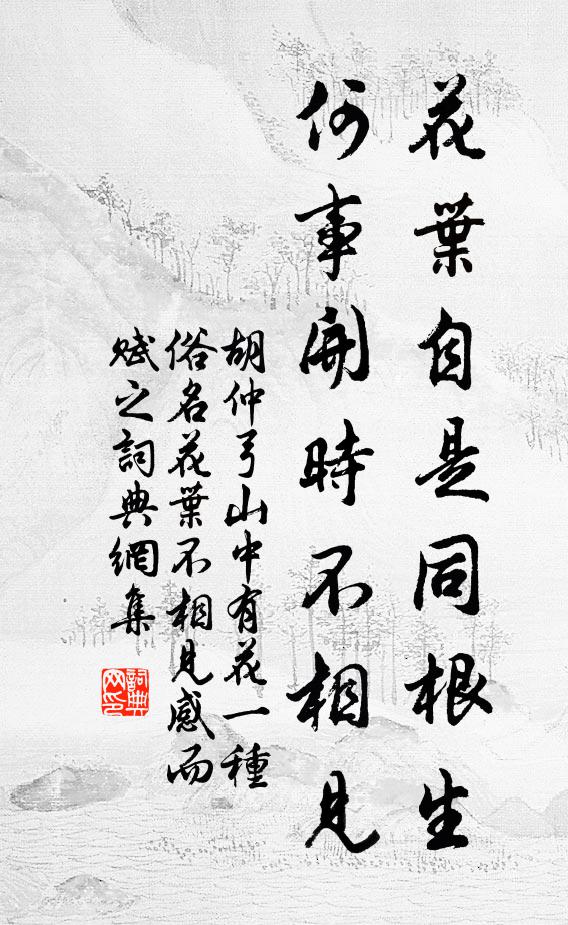 花葉自是同根生
何事開時不相見
胡仲弓山中有花一種
俗名花葉不相見感而
賦之詞典網集
詞典
网印